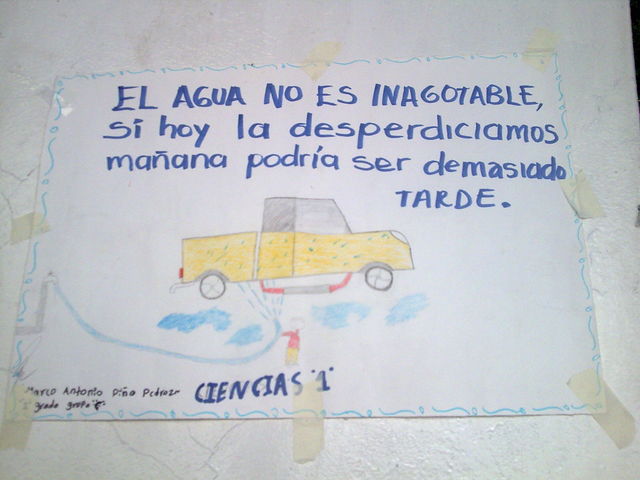 EL AGUA NO ES INAGOTABLE,
si hoy la desperdiciamos
mañana podría ser demasiado
TARDE.
CIENCIAS "1"
Marco Antonio Piña Pedroza
grado grupo